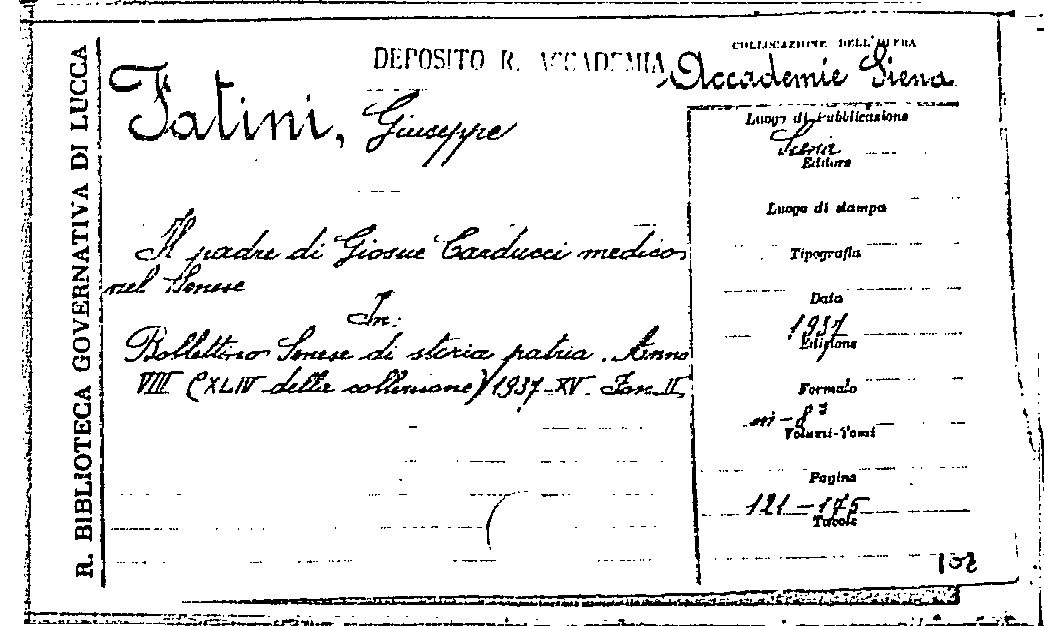 R. BIBLIOTECA GOVERNATIVA DI LUCCA
DEPOSITO R. ACCADEMIA
COLLOCAZIONE DELL'OPERA
Accademie Siena
Fatini, Giuseppe
Il padre di Giosue Carducci medico
nel Senese
In:
Bollettino Senese di storia patria. Anno
VIII (XLIV della collezione) 1937-XV. Fasc. II
Luogo di Pubblicazione
Siena
Editore
Luogo di stampa
Tipografia
Data
1937
Edizione
Formato
in-8°
Volumi-Tomi
Pagine
121-175
Tavole
102